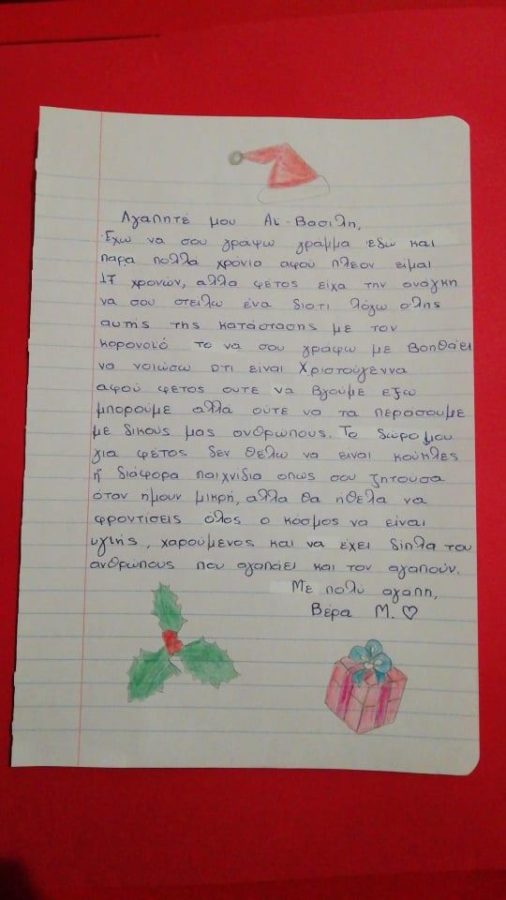 Αγαπητέ μου Αϊ-Βασίλη,
Έχω να σου γράψω γράμμα εδώ και
παρα πολλά χρόνια αφού πλεον ειμαι
17 χρονών, αλλα φέτος είχα την αναγκη
να σου στειλω ένα διοτι λόγω όλης
αυτής της κατάστασης με τον
κορονοιό το να σου γράφω με βοηθάει
να νοιώσω οτι ειναι Χριστούγεννα
αφού φετος ουτε να βγούμε εξω
μπορούμε αλλά ούτε να τα περάσουμε
με δικους μας ανθρωπους. Το δώρο μου
για φέτος δεν θελω να ειναι κούκλες
ή διάφορα παιχνίδια οπως σου ζητουσα
όταν ημουν μικρή, αλλα θα ήθελα να
φροντίσεις όλος ο κοσμος να είναι
υγιής, χαρούμενος και να έχει διπλα του
ανθρώπους που αγαπάει και τον αγαπούν.
Με πολύ αγαπη,
Βέρα Μ. ♡